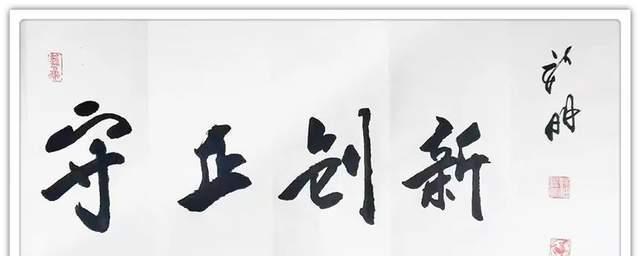 守正创新